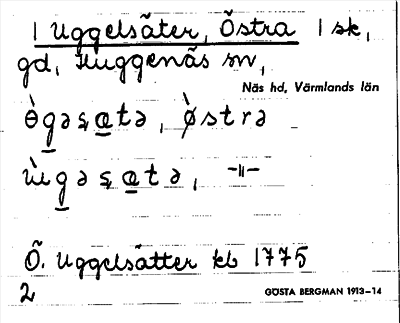 1 Uggelsäter, Östra 1 sk,
gd, Huggenäs sn,
Näs hd, Värmlands län
ɵ̀gəʂatə, ø̀strə
ɯ̀gəʂatə, -〃-
Ö. Uggelsätter kb 1775
2
GÖSTA BERGMAN 1913–14